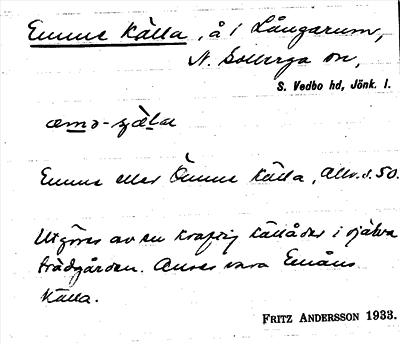 Emme källa, å 1 Långarum,
N. Solberga sn,
S. Vedbo hd, Jönk. l.
æmə-ɕæla
Emme eller Ömme källa, Allv. s. 50.
Utgöres av en kraftig källåder i själva
trädgården. Anses vara Emåns
källa.
FRITZ ANDERSSON 1933.